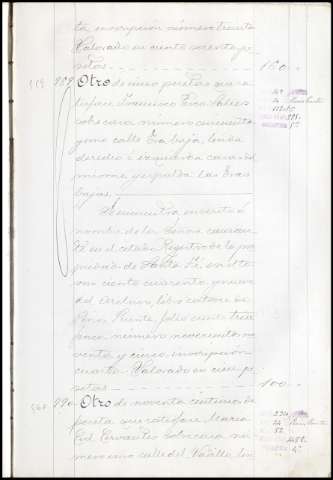 ta inscripción número treinta
Valorado en ciento sesenta pe-
setas. 160
909 Otro de cinco pesetas que sa-
tisface Francisco
sobre casa número cincuenta
y uno calle Era baja, linda
derecha e izquierda casas del
mismo y espalda Las Eras
bajas.
Se encuentra inscrito á
nombre de la Señora causan-
te en el citado Registro de la pro-
piedad de Santa Fé, en el to-
mo ciento cuarenta y nueve
del Archivo, libro catorce de
Pinos Puente, folio
número novecientos no-
venta y cinco, inscripción
cuarta. Valorado en cien pe-
setas 100
910 Otro de noventa centimos de
peseta que satisface Maria
Cervantes sobre casa nú-
mero uno calle del